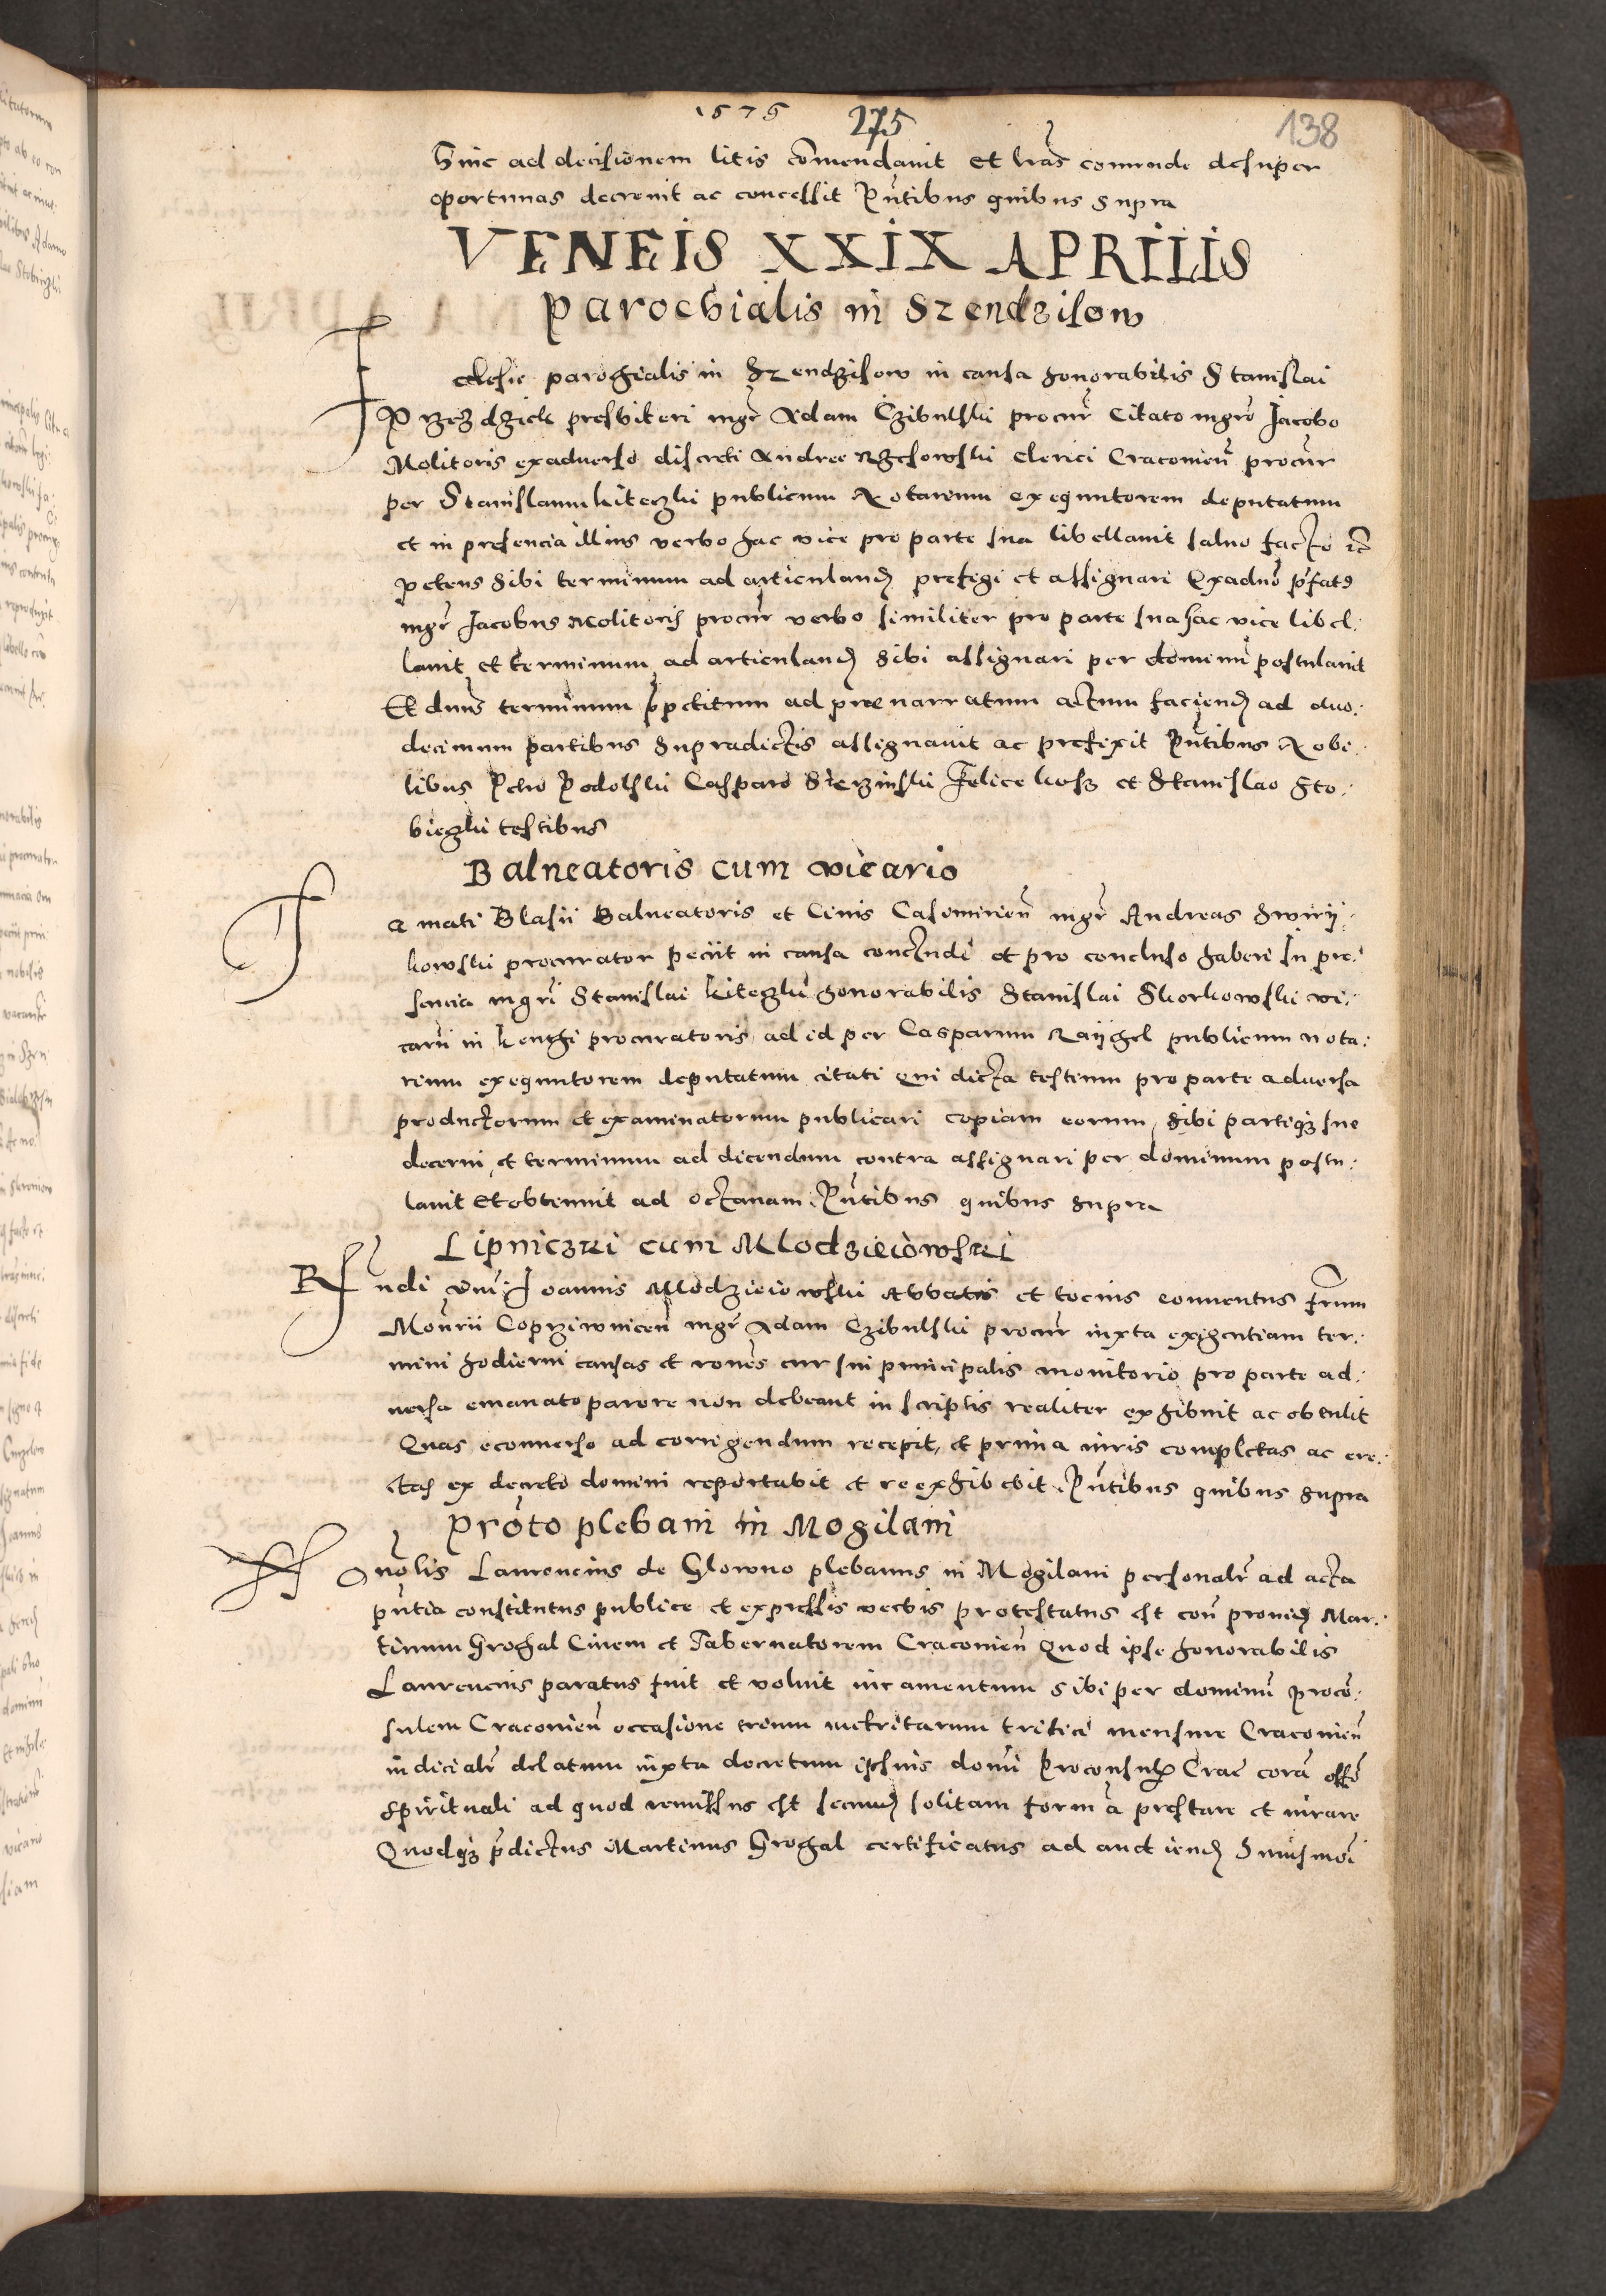 1575
275
138
Hinc ad decisionem litis com̃endauit et lras̃ eomnde desuper
oportunas decreuit ac concessit Pñtibus quibus supra
VENEIS XXIX APRILIS
Parochialis in Szendzisow
Ecclesie parochialis in Szendzisow in causa honorabilis Stanislai
Przezdziek presbiteri mgr̃ Adam Czibulski procur̃ Citato mgrõ Jacobo
Molitoris exaduerso discreti Andree Rzesowski Clerici Cracouien̄ procur̃
per Stanislaum Kiteczki publicum Notarium exequutorem deputatum
et in presencia illius verbo hac vice pro parte sua libellauit saluo facto etc̃
petens sibi terminum ad articulanḍ prefigi et assignari Exaduõ p̃fatꝰ
mgr̃ Jacobus Molitoris procur̃ verbo similiter pro parte sua hac vice libel:
lauit et terminum ad articulanḍ sibi assignari per dominũ postulauit
Et dñus terminum p̱petitum ad prenarratum actum faciendḍ ad duo:
decimum partibus supradictis assignauit ac prefixit Pñtibus Nobi:
libus Petro Podolski Casparo Sierzinski Felice Kosz et Stanislao Sto:
bieczki testibus
Balneatoris cum vicario
Famati Blasii Balneatoris et Ciuis Casominien̄ mgr̃ Andreas Swirij:
kowski procurator peciit in causa concludi et pro concluso haberi In pre:
sencia mgrĩ Stanislai Kiteczki honorabilis Stanislai Skorkowski vi:
carii in Kenthi procuratoris ad id per Casparum Rayghel publicum nota:
rium exequutorem deputatum citati qui dicta testium pro parte aduersa
productorum et examinatorum publicari copiam eorum sibi partiqꝫ sue
decerni et terminum ad dicendum contra assignari per dominum postu:
lauit et obtinuit ad octauam Pñtibus quibus supra
Lipniczki cum Mlodzieiowski
Rñdi dñi Joannis Mlodzieiowski Abbatis et tocius conuentus frum̃
Monr̃ii Coprziwnicen̄ mgr̃ Adam Czibulski procur̃ iuxta exigentiam ter:
mini hodierni causas et rones̃ cur sui principalis monitorio pro parte ad:
uersa emanato parere non debeant in scriptis realiter exhibuit ac obtulit
Quas econuerso ad corrigendum recepit et prima iuris completas ac ere:
ctas ex decreto domini reportabit et reexhibebit Pñtibus quibus supra
Proto plebani in Mogilani
Honol̃is Laurencius de Glowno plebanus in Mogilani personalr̃ ad acta
pñtia constitutus publice et expressis verbis protestatus est con̄ prouiḍ Mar:
tinum Grothal Ciuem et Tabernatorem Cracouien̄ Quod ipse honorabilis
Laurencius paratus fuit et voluit iuramentum sibi per dominũ Proco̱:
sulem Cracouien̄ occasione trium metritarum tritici mensure Cracouien̄
iudicialr̃ delatum iuxta decretum ipsius domĩ Proconsulis Crac̃ corã offõ
spirituali ad quod remissus est secundḍ solitam formã prestare et iurare
Quodqꝫ p̃dictus Martinus Grothal certificatus ad audiendḍ huiusmõi